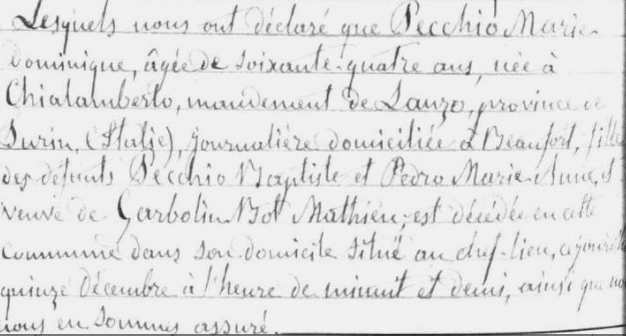 Lesquels nous ont déclaré que Pecchio Marie
Dominique, âgée de soixante-quatre ans, née à
Chialamberto, mandement de Lanzo, province de
Turin, (Italie), journalière domiciliée à Beaufort, fille
des défunts Pecchio Baptiste et Pedro Marie-Anne, et
veuve de Garbolin Bot Mathieu, est décédée en cette
commune dans son domicile situé au chef-lieu, ce jourd'hui
quinze Décembre à l'heure de minuit et demi, ainsi que nous
nous en sommes assuré.